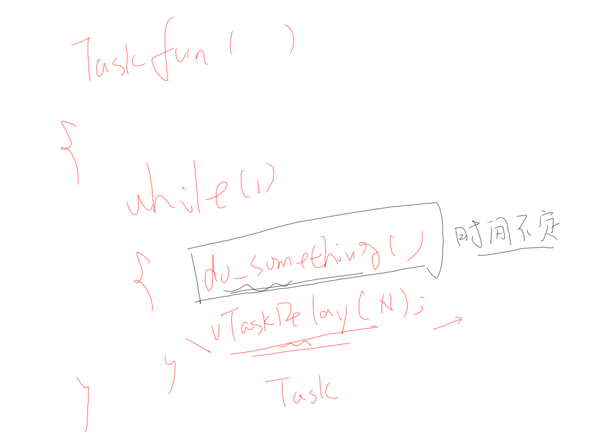 Taskfun ( )
{
while(1)
{ do_something() 时间不定
vTaskDelay(N);
}
}
Task